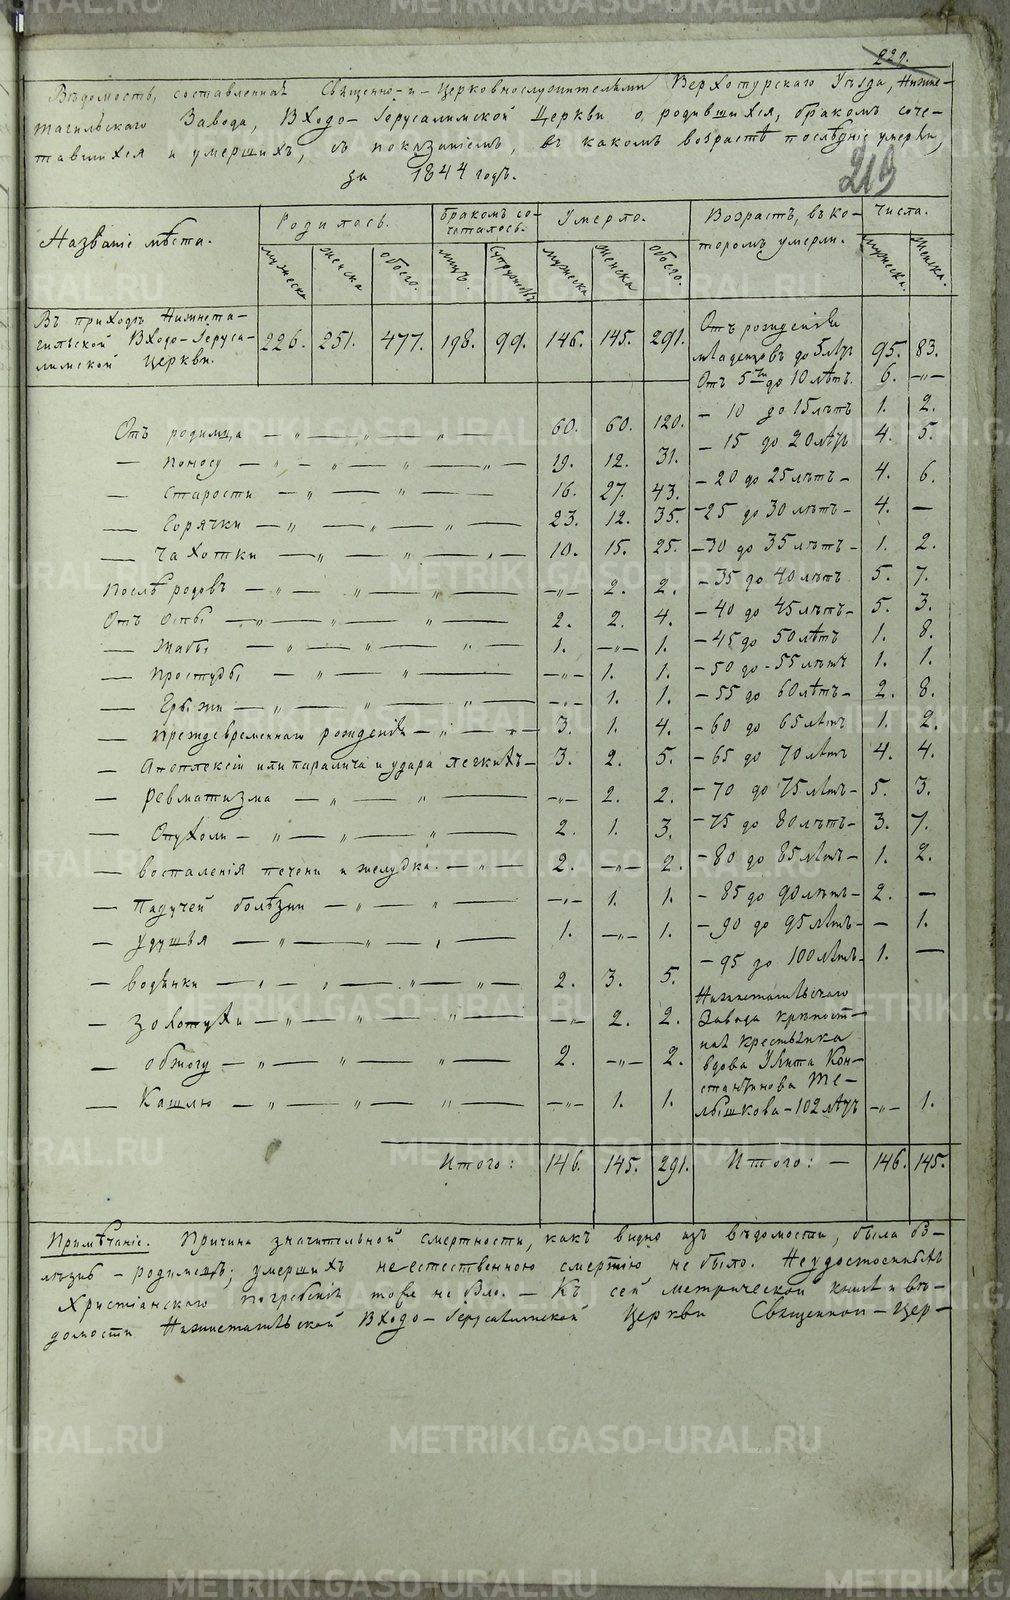 221.
Вѣдомость, составленная Священно-и-Церковнослужителями Верхотурскаго Уѣзда, Нижне-
тагильскаго Завода, Входо-Іерусалимской Церкви о родившихся, бракомъ соче-
тавшихся и умершихъ, съ показаніемъ, въ какомъ возрастѣ послѣдніе умерли,
за 1844 годъ.
213
Названіе мѣста. Родилось. Бракомъ со-четалось. Умерло. Возрастъ, въ ко-торомъ умерли. Числа.
мужеска женска обоего. лицъ. супружествъ мужеска женска обоего. мужеска. женска.
Въ приходѣ Нижнета-
гильской Входо-Іеруса-
лимской церкви. 226. 251. 477. 198. 99. 146. 145. 291.
Отъ рожденія
младенцовъ до 5 лѣтъ 95. 83.
Отъ 5ти до 10 лѣтъ. 6. -„-
Отъ родимца 60. 60. 120. — 10 до 15 лѣтъ 1. 2.
— поносу 19. 12. 31. — 15 до 20 лѣтъ 4. 5.
— старости 16. 27. 43. — 20 до 25 лѣтъ 4. 6.
— горячки 23. 12. 35. — 25 до 30 лѣтъ 4. —
— чахотки 10. 15. 25. — 30 до 35 лѣтъ 1. 2.
Послѣ родовъ -„- 2. 2. — 35 до 40 лѣтъ 5. 7.
Отъ оспы 2. 2. 4. — 40 до 45 лѣтъ 5. 3.
— жабы 1. -„- 1. — 45 до 50 лѣтъ 1. 8.
— простуды -„- 1. 1. — 50 до 55 лѣтъ 1. 1.
— грыжи -„- 1. 1. — 55 до 60 лѣтъ 2. 8.
— преждевременнаго рожденія 3. 1. 4. — 60 до 65 лѣтъ 1. 2.
— Апоплексіи или паралича и удара легкихъ 3. 2. 5. — 65 до 70 лѣтъ 4. 4.
— ревматизма -„- 2. 2. — 70 до 75 лѣтъ 5. 3.
— опухоли 2. 1. 3. — 75 до 80 лѣтъ 3. 7.
— воспаленія печени и желудка. 2. -„- 2. — 80 до 85 лѣтъ 1. 2.
— Падучей болѣзни -„- 1. 1. — 85 до 90 лѣтъ 2. —
— удушья 1. -„- 1. — 90 до 95 лѣтъ — 1.
— водянки 2. 3. 5. — 95 до 100 лѣтъ 1. —
— золотухи -„- 2. 2.
— обжогу 2. -„- 2.
— Кашлю -„- 1. 1.
Нижнетагильскаго
Завода крѣпост-
ная крестьянка
вдова Улита Кон-
стантинова Ме-
лышкова — 102 лѣтъ -„- 1.
Итого: 146. 145. 291. Итого: — 146. 145.
Примѣчаніе. Причина значительной смертности, какъ видно изъ вѣдомости, была бо-
лѣзнь — родимецъ; умершихъ неестественною смертію не было. Неудостоенныхъ
Христіанскаго погребенія тоже не было. — Къ сей метрической книгѣ и вѣ-
домости Нижнетагильской Входо-Іерусалимской Церкви Священно-Цер-
METRIKI.GASO-URAL.RU